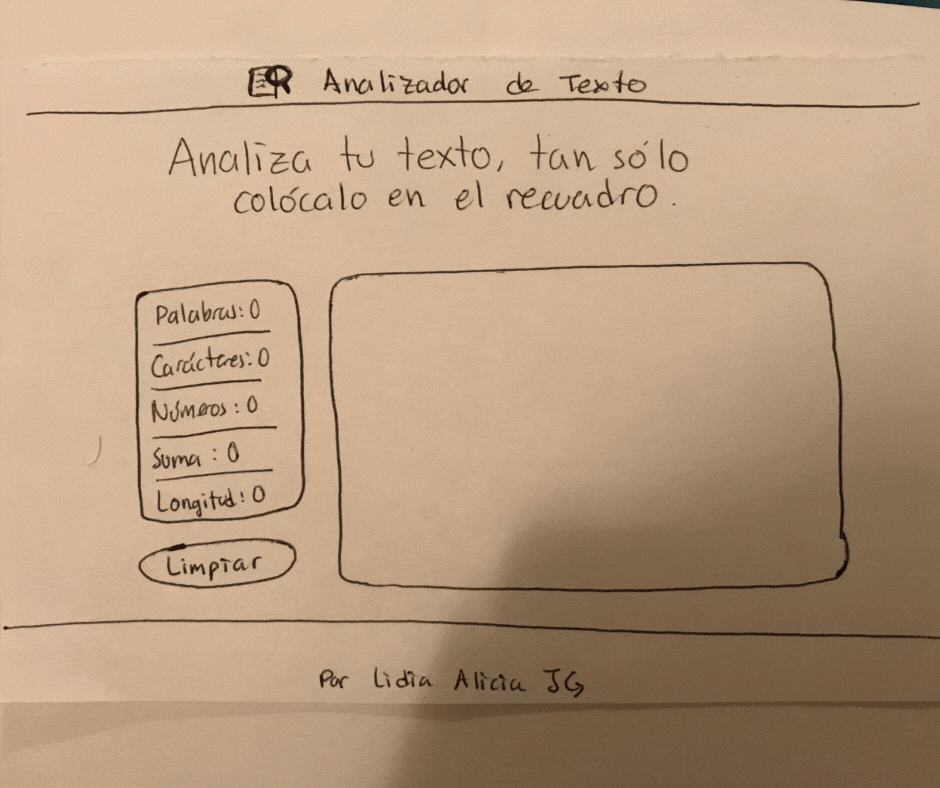 Analizador de Texto
Analiza tu texto, tan sólo
colócalo en el recuadro.
Palabras: 0
Carácteres: 0
Números: 0
Suma: 0
Longitud: 0
Limpiar
Por Lidia Alicia JG